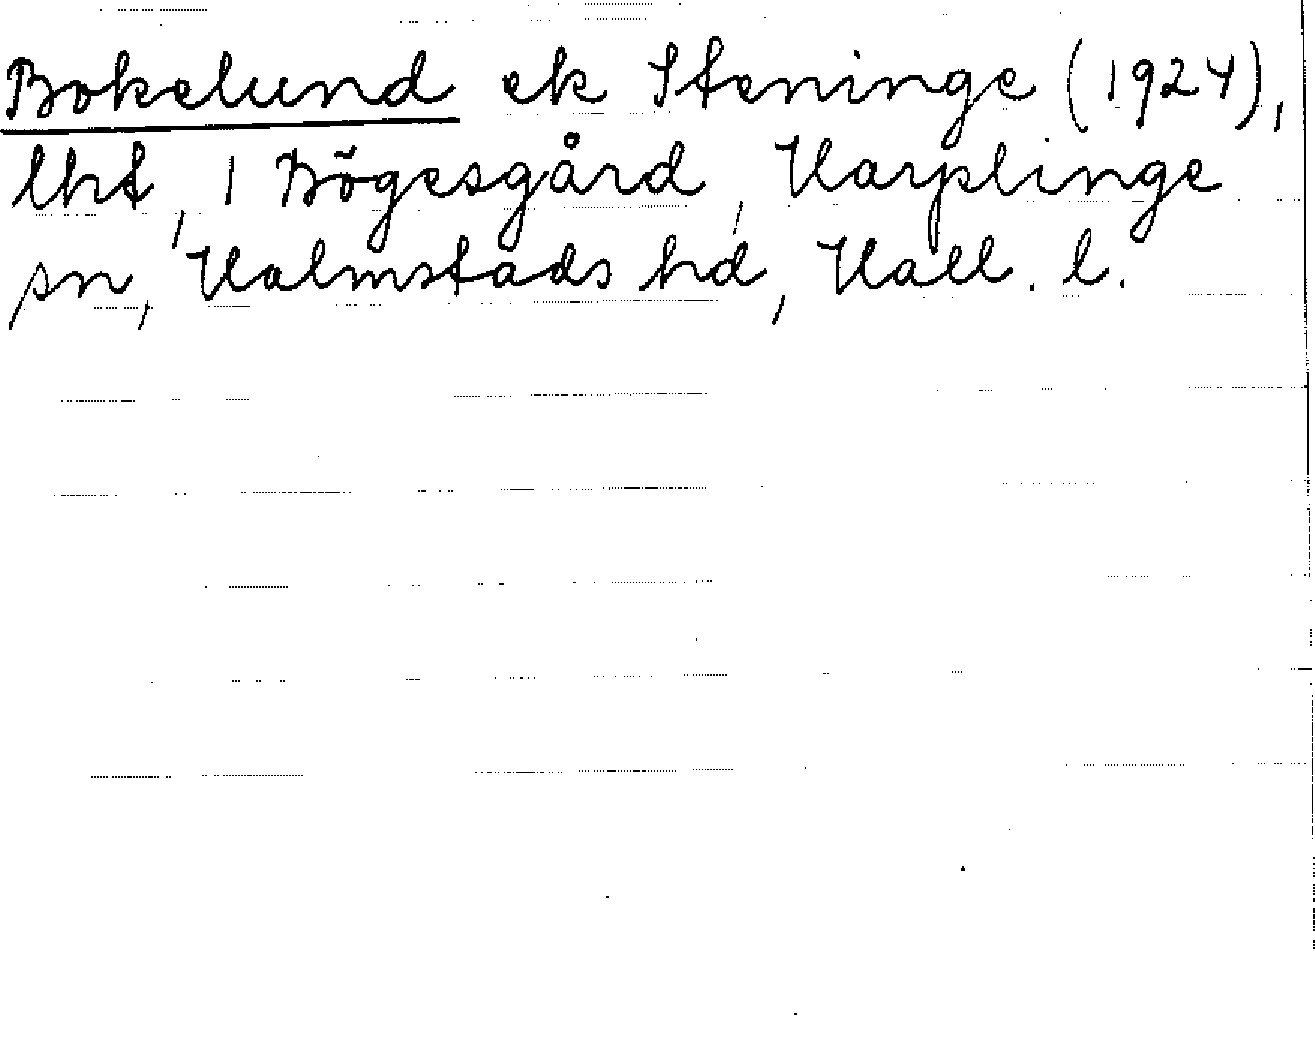 Bokelund ek Steninge (1924),
lht, 1 Bögesgård, Harplinge
sn, Halmstads hd, Hall. l.